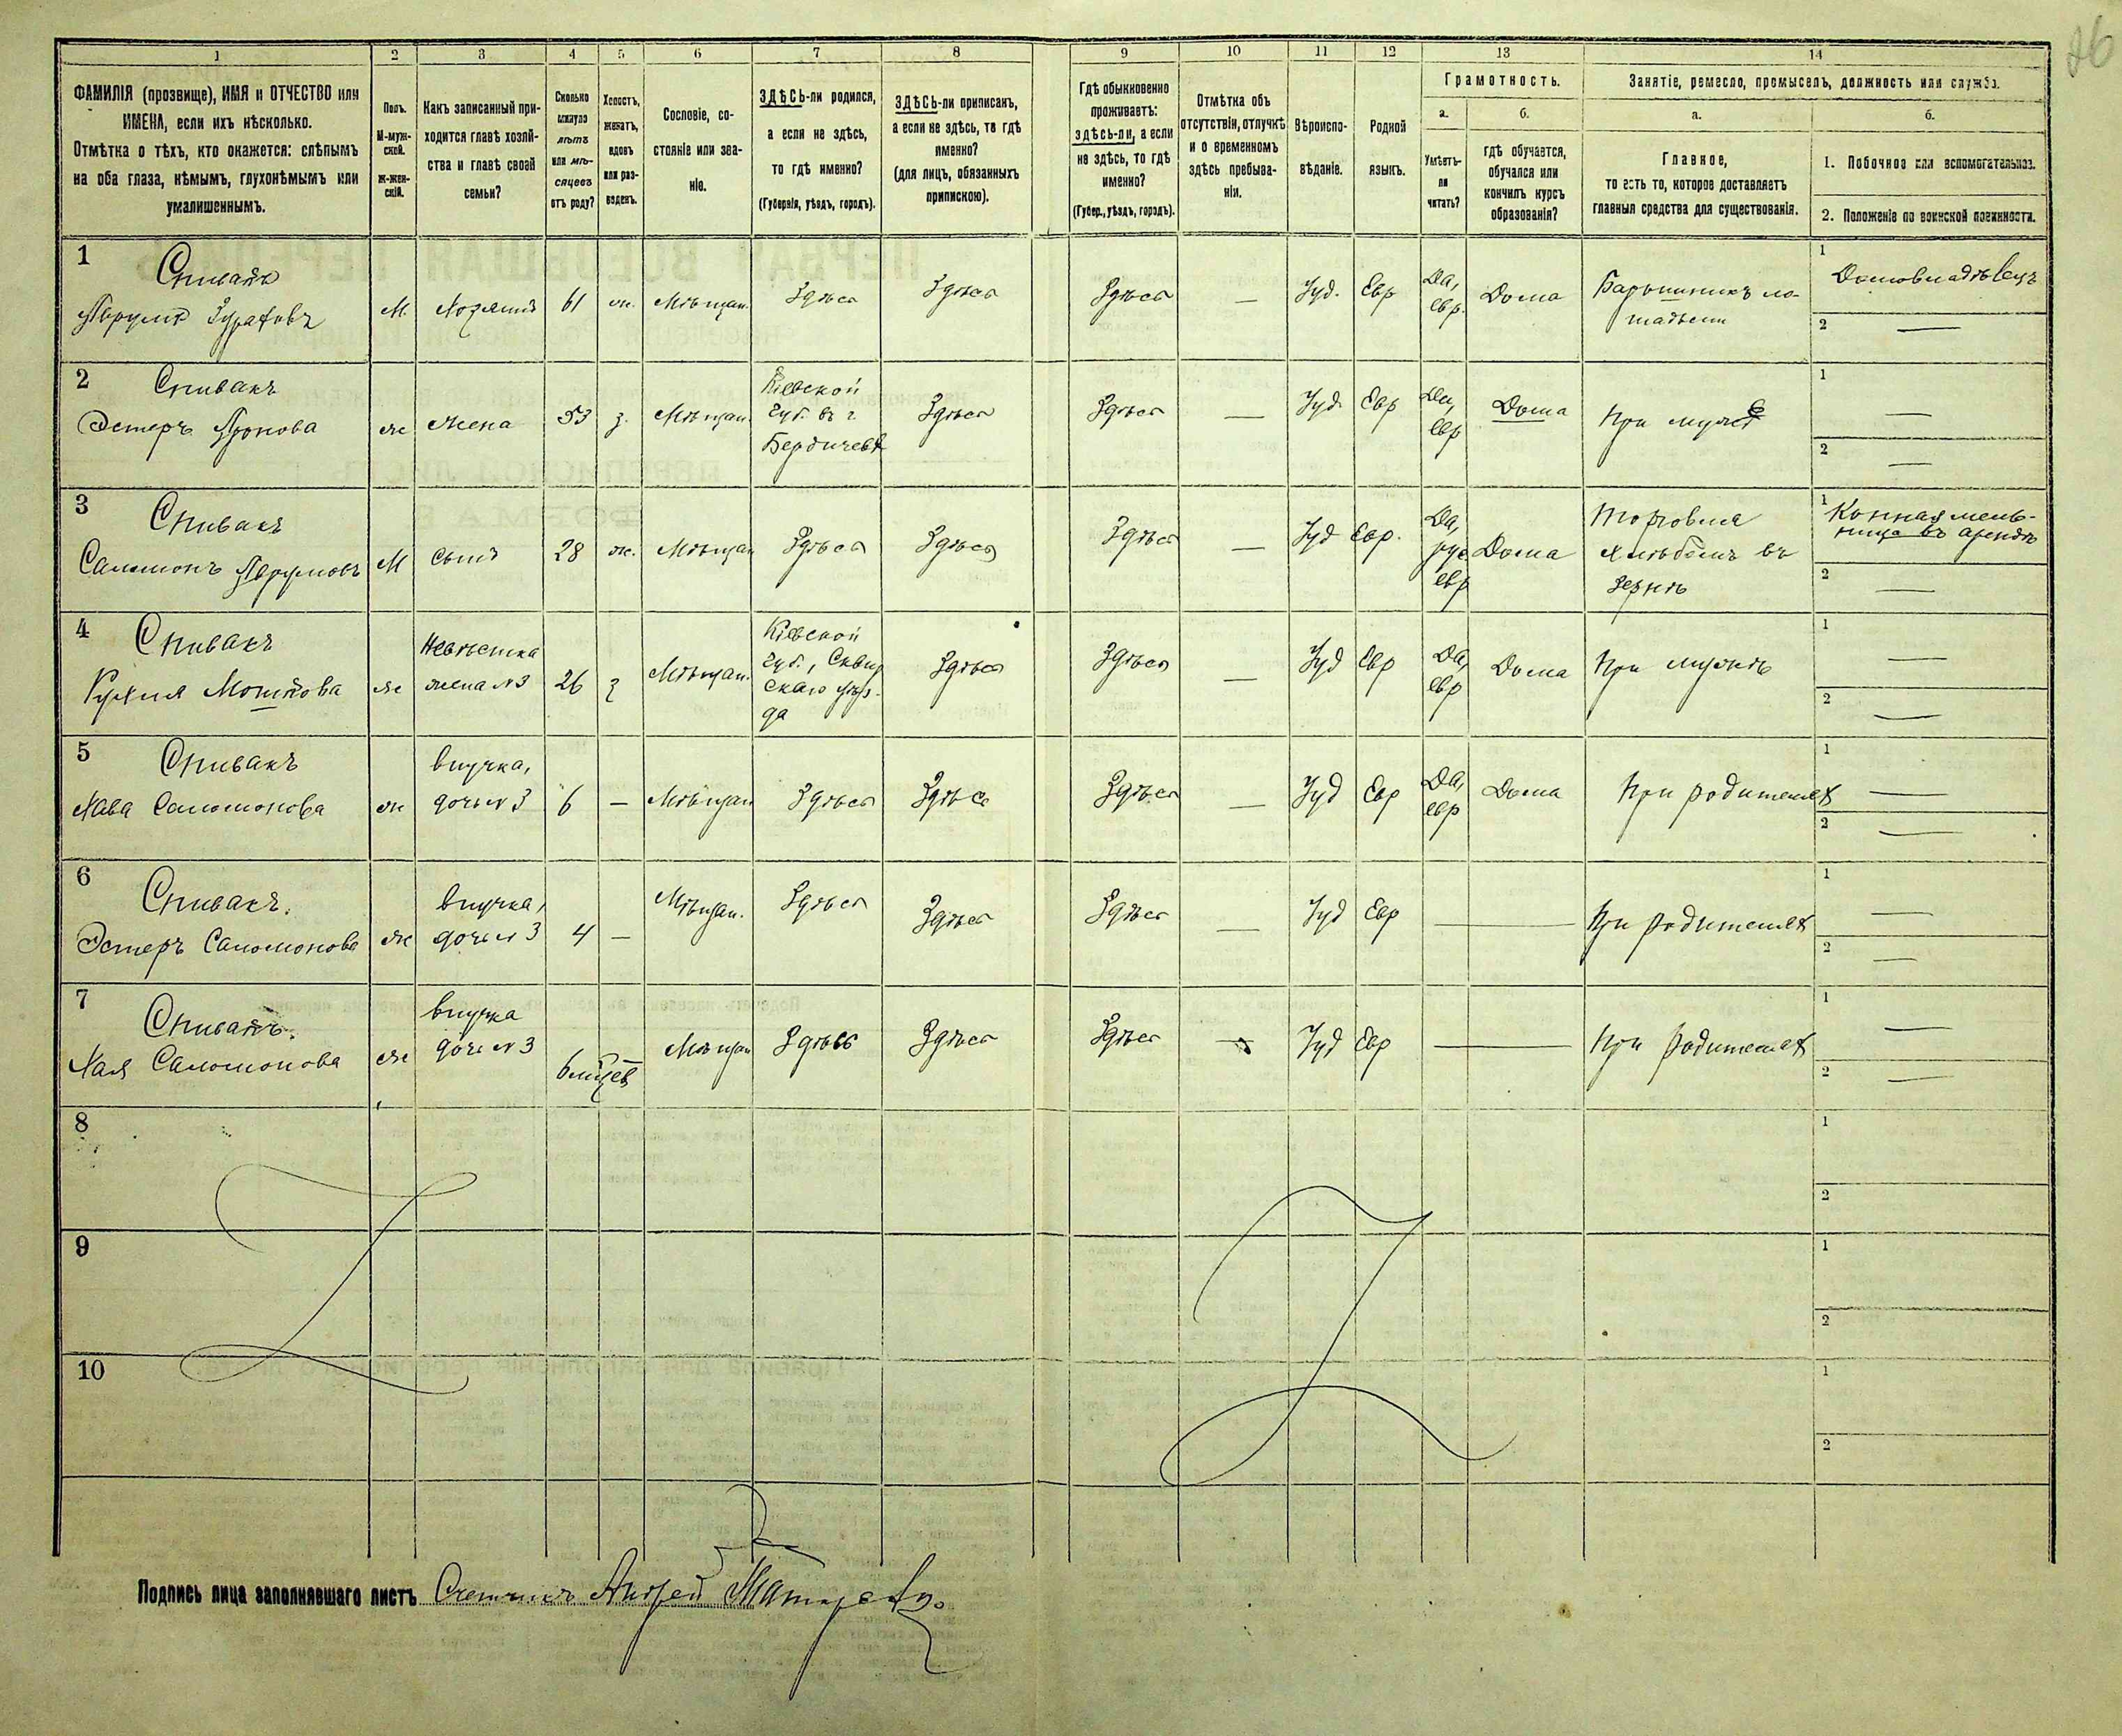 26
1 2 3 4 5 6 7 8 9 10 11 12 13 14
ФАМИЛІЯ (прозвище), ИМЯ и ОТЧЕСТВО или
ИМЕНА, если ихъ нѣсколько.
Отмѣтка о тѣхъ, кто окажется: слѣпымъ
на оба глаза, нѣмымъ, глухонѣмымъ или
умалишеннымъ.
Полъ.
М-муж-
ской.
Ж-жен-
скій.
Какъ записанный при-
ходится главѣ хозяй-
ства и главѣ своей
семьи?
Сколько
минуло
лѣтъ
или мѣ-
сяцевъ
отъ роду?
Холостъ,
женатъ,
вдовъ
или раз-
веденъ.
Сословіе, со-
стояніе или зва-
ніе.
ЗДѢСЬ-ли родился,
а если не здѣсь,
то гдѣ именно?
(Губернія, уѣздъ, городъ).
ЗДѢСЬ-ли приписанъ,
а если не здѣсь, то гдѣ
именно?
(для лицъ, обязанныхъ
припискою).
Гдѣ обыкновенно
проживаетъ:
здѣсь-ли, а если
не здѣсь, то гдѣ
именно?
(Губер., уѣздъ, городъ).
Отмѣтка объ
отсутствіи, отлучкѣ
и о временномъ
здѣсь пребыва-
ніи.
Вѣроиспо-
вѣданіе.
Родной
языкъ.
Грамотность.
а.
Умѣетъ-
ли
читать?
б.
гдѣ обучается,
обучался или
кончилъ курсъ
образованія?
Занятіе, ремесло, промыселъ, должность или служба.
а.
Главное,
то есть то, которое доставляетъ
главныя средства для существованія.
б.
1. Побочное или вспомогательное.
2. Положеніе по воинской повинности.
1
Спивакъ
Аврумъ
М.
Хозяинъ
61
ж.
Мѣщан.
Здѣсь
Здѣсь
Здѣсь
—
Іуд.
Евр
Да,
евр.
Дома
Барышникъ ло-
шадьми
1
Домовладѣлецъ
2 —
2
Спивакъ
Эстеръ Аронова
ж
жена
53
з.
Мѣщан.
Кіевской
губ. въ г
Бердичевѣ
Здѣсь
Здѣсь
—
Іуд.
Евр
Да,
евр
Дома
При мужѣ
1 —
2 —
3
Спивакъ
Саломонъ Аврумовъ
М
сынъ
28
ж.
Мѣщан
Здѣсь
Здѣсь
Здѣсь
—
Іуд
Евр.
Да,
рус
евр
Дома
Торговля
хлѣбомъ въ
зернѣ
1 Конная мель-
ница въ арендѣ
2 —
4
Спивакъ
Рухля Мошкова
ж
невѣстка
жена №3
26
з
Мѣщан.
Кіевской
губ., Сквир
скаго уѣз-
да
Здѣсь
Здѣсь
—
Іуд
Евр
Да,
евр
Дома
При мужѣ
1 —
2 —
5
Спивакъ
Хава Саломонова
ж
внучка,
дочь №3
6
—
Мѣщан
Здѣсь
Здѣсь
Здѣсь
—
Іуд
Евр
Да,
евр
Дома
При родителях
1 —
2 —
6
Спивакъ.
Эстеръ Саломонова
ж
внучка,
дочь № 3
4
—
Мѣщан.
Здѣсь
Здѣсь
Здѣсь
—
Іуд
Евр
—
При родителях
1 —
2 —
7
Спивакъ.
Хая Саломонова
ж
внучка
дочь №3
6 мѣсяцев
—
Мѣщан
Здѣсь
Здѣсь
Здѣсь
—
Іуд
Евр
—
При родителях
1 —
2 —
8
1
2
9
1
2
10
1
2
Подпись лица заполнявшаго листъ Счетчикъ Андрей